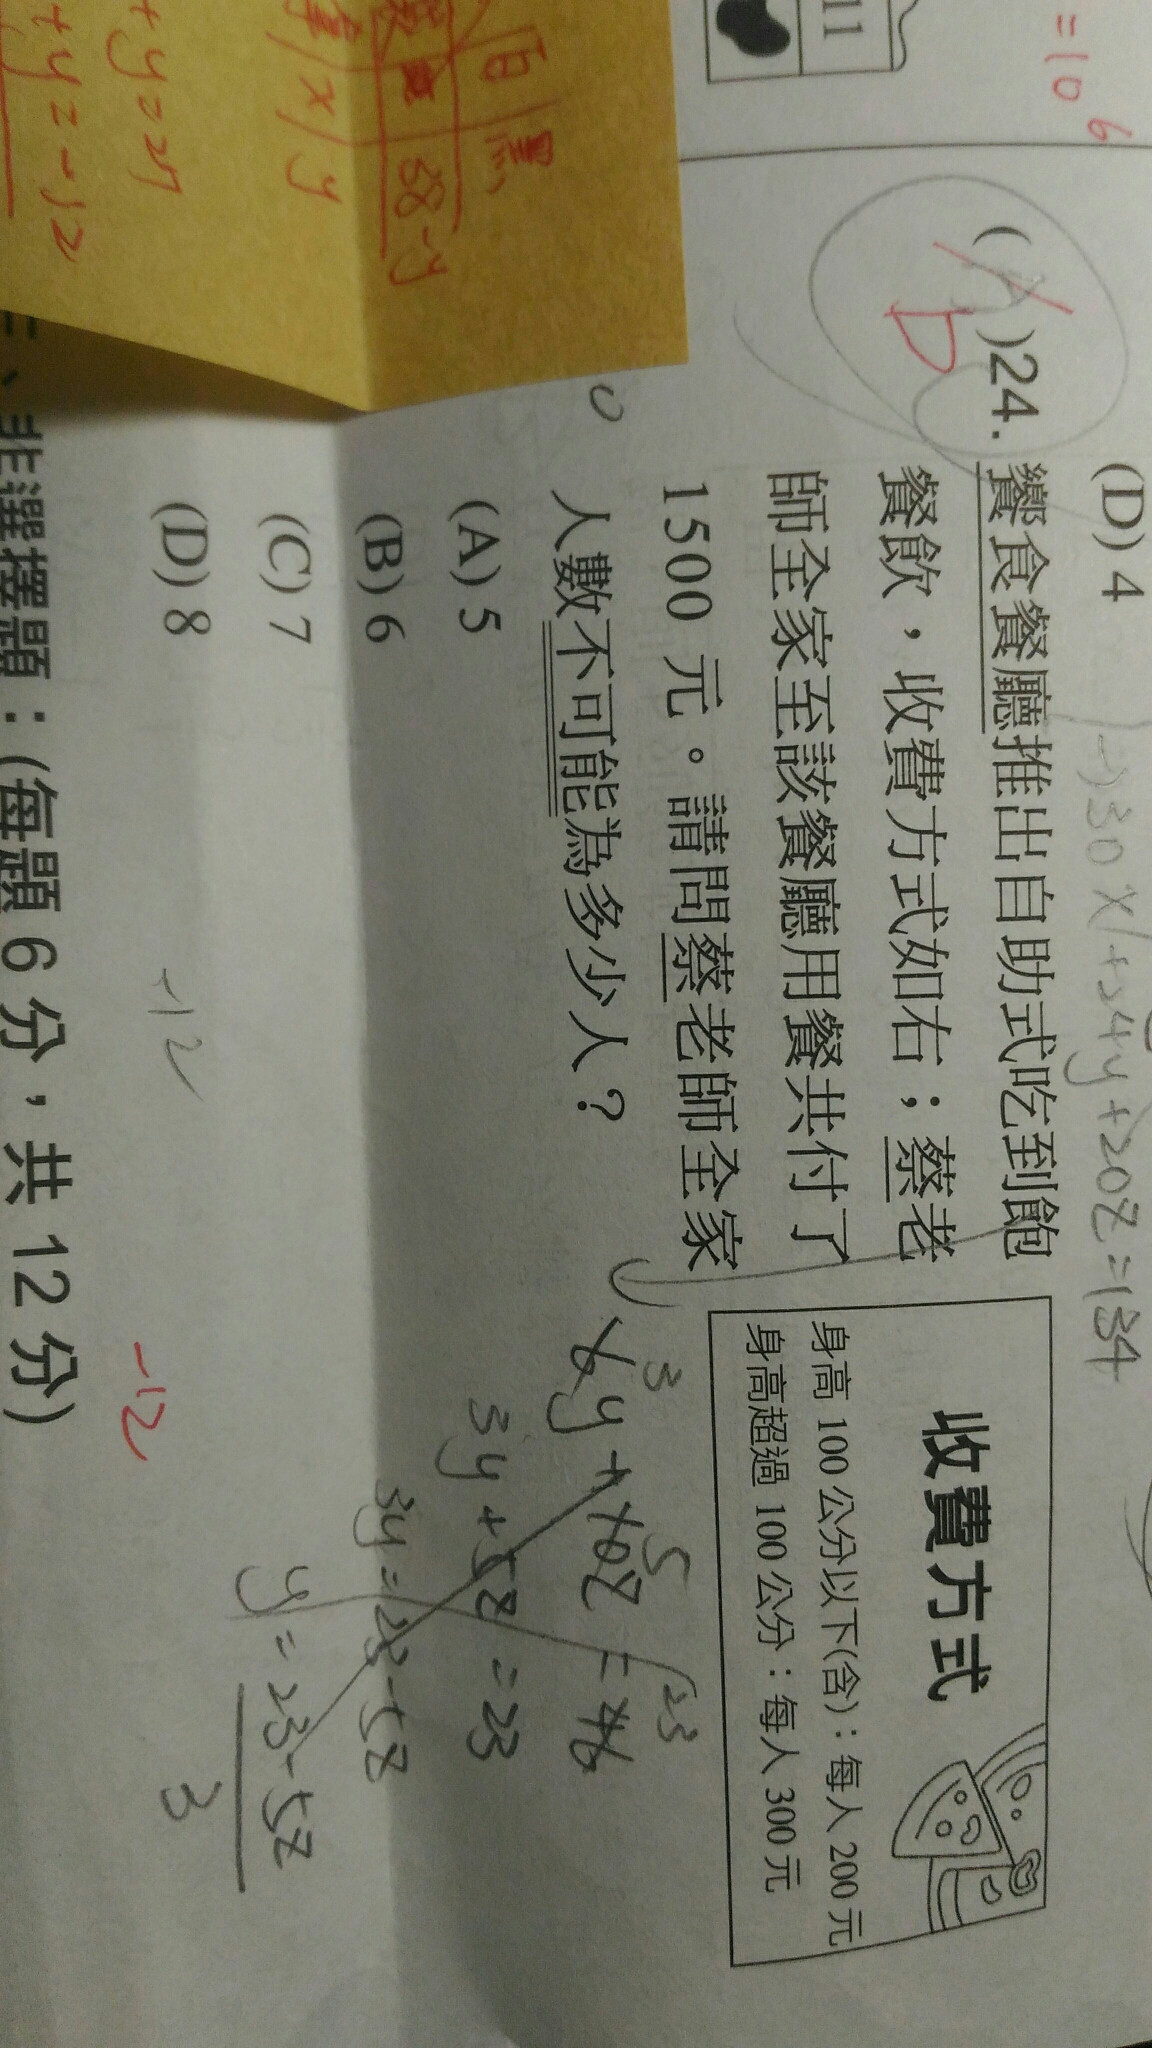 =10⁶
11
(D) 4
30x+24y+20z=134
(A)24.饗食餐廳推出自助式吃到飽
D
餐飲，收費方式如右；蔡老
師全家至該餐廳用餐共付了
1500 元。請問蔡老師全家
人數不可能為多少人？
(A) 5
(B) 6
(C) 7
(D) 8
收費方式
身高 100 公分以下(含)：每人 200 元
身高超過 100 公分：每人 300 元
3 5 23
6y+10z=46
3y+5z=23
3y=23-5z
y=23-5z
3
-12
-12
白 黑
58-y
x y
+y=-12
二、非選擇題：(每題 6 分，共 12 分)